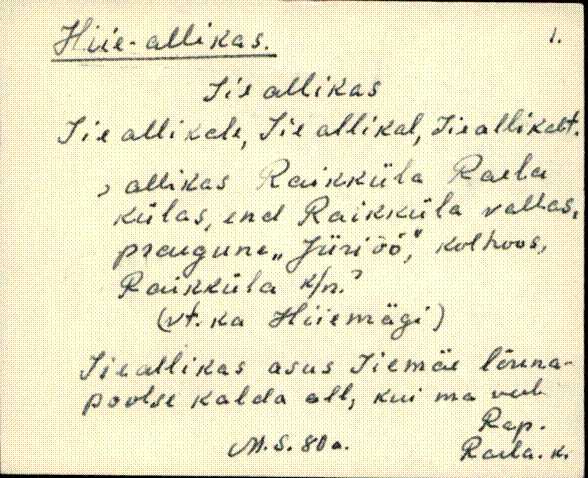 Hiie-allikas. 1.
Iie allikas
Iie allikale, Iie allikal, Iie allikalt.
, allikas Raikküla Raela
külas, end Raikküla vallas,
praegune „Jüriöö,” kolhoos,
Raikküla k/n.’
(vt. ka Hiiemägi)
Iieallikas asus Iiemäe lõuna-
poolse kalda all, kui ma veel
Rap.
M. S. 80 a. Raela. k.